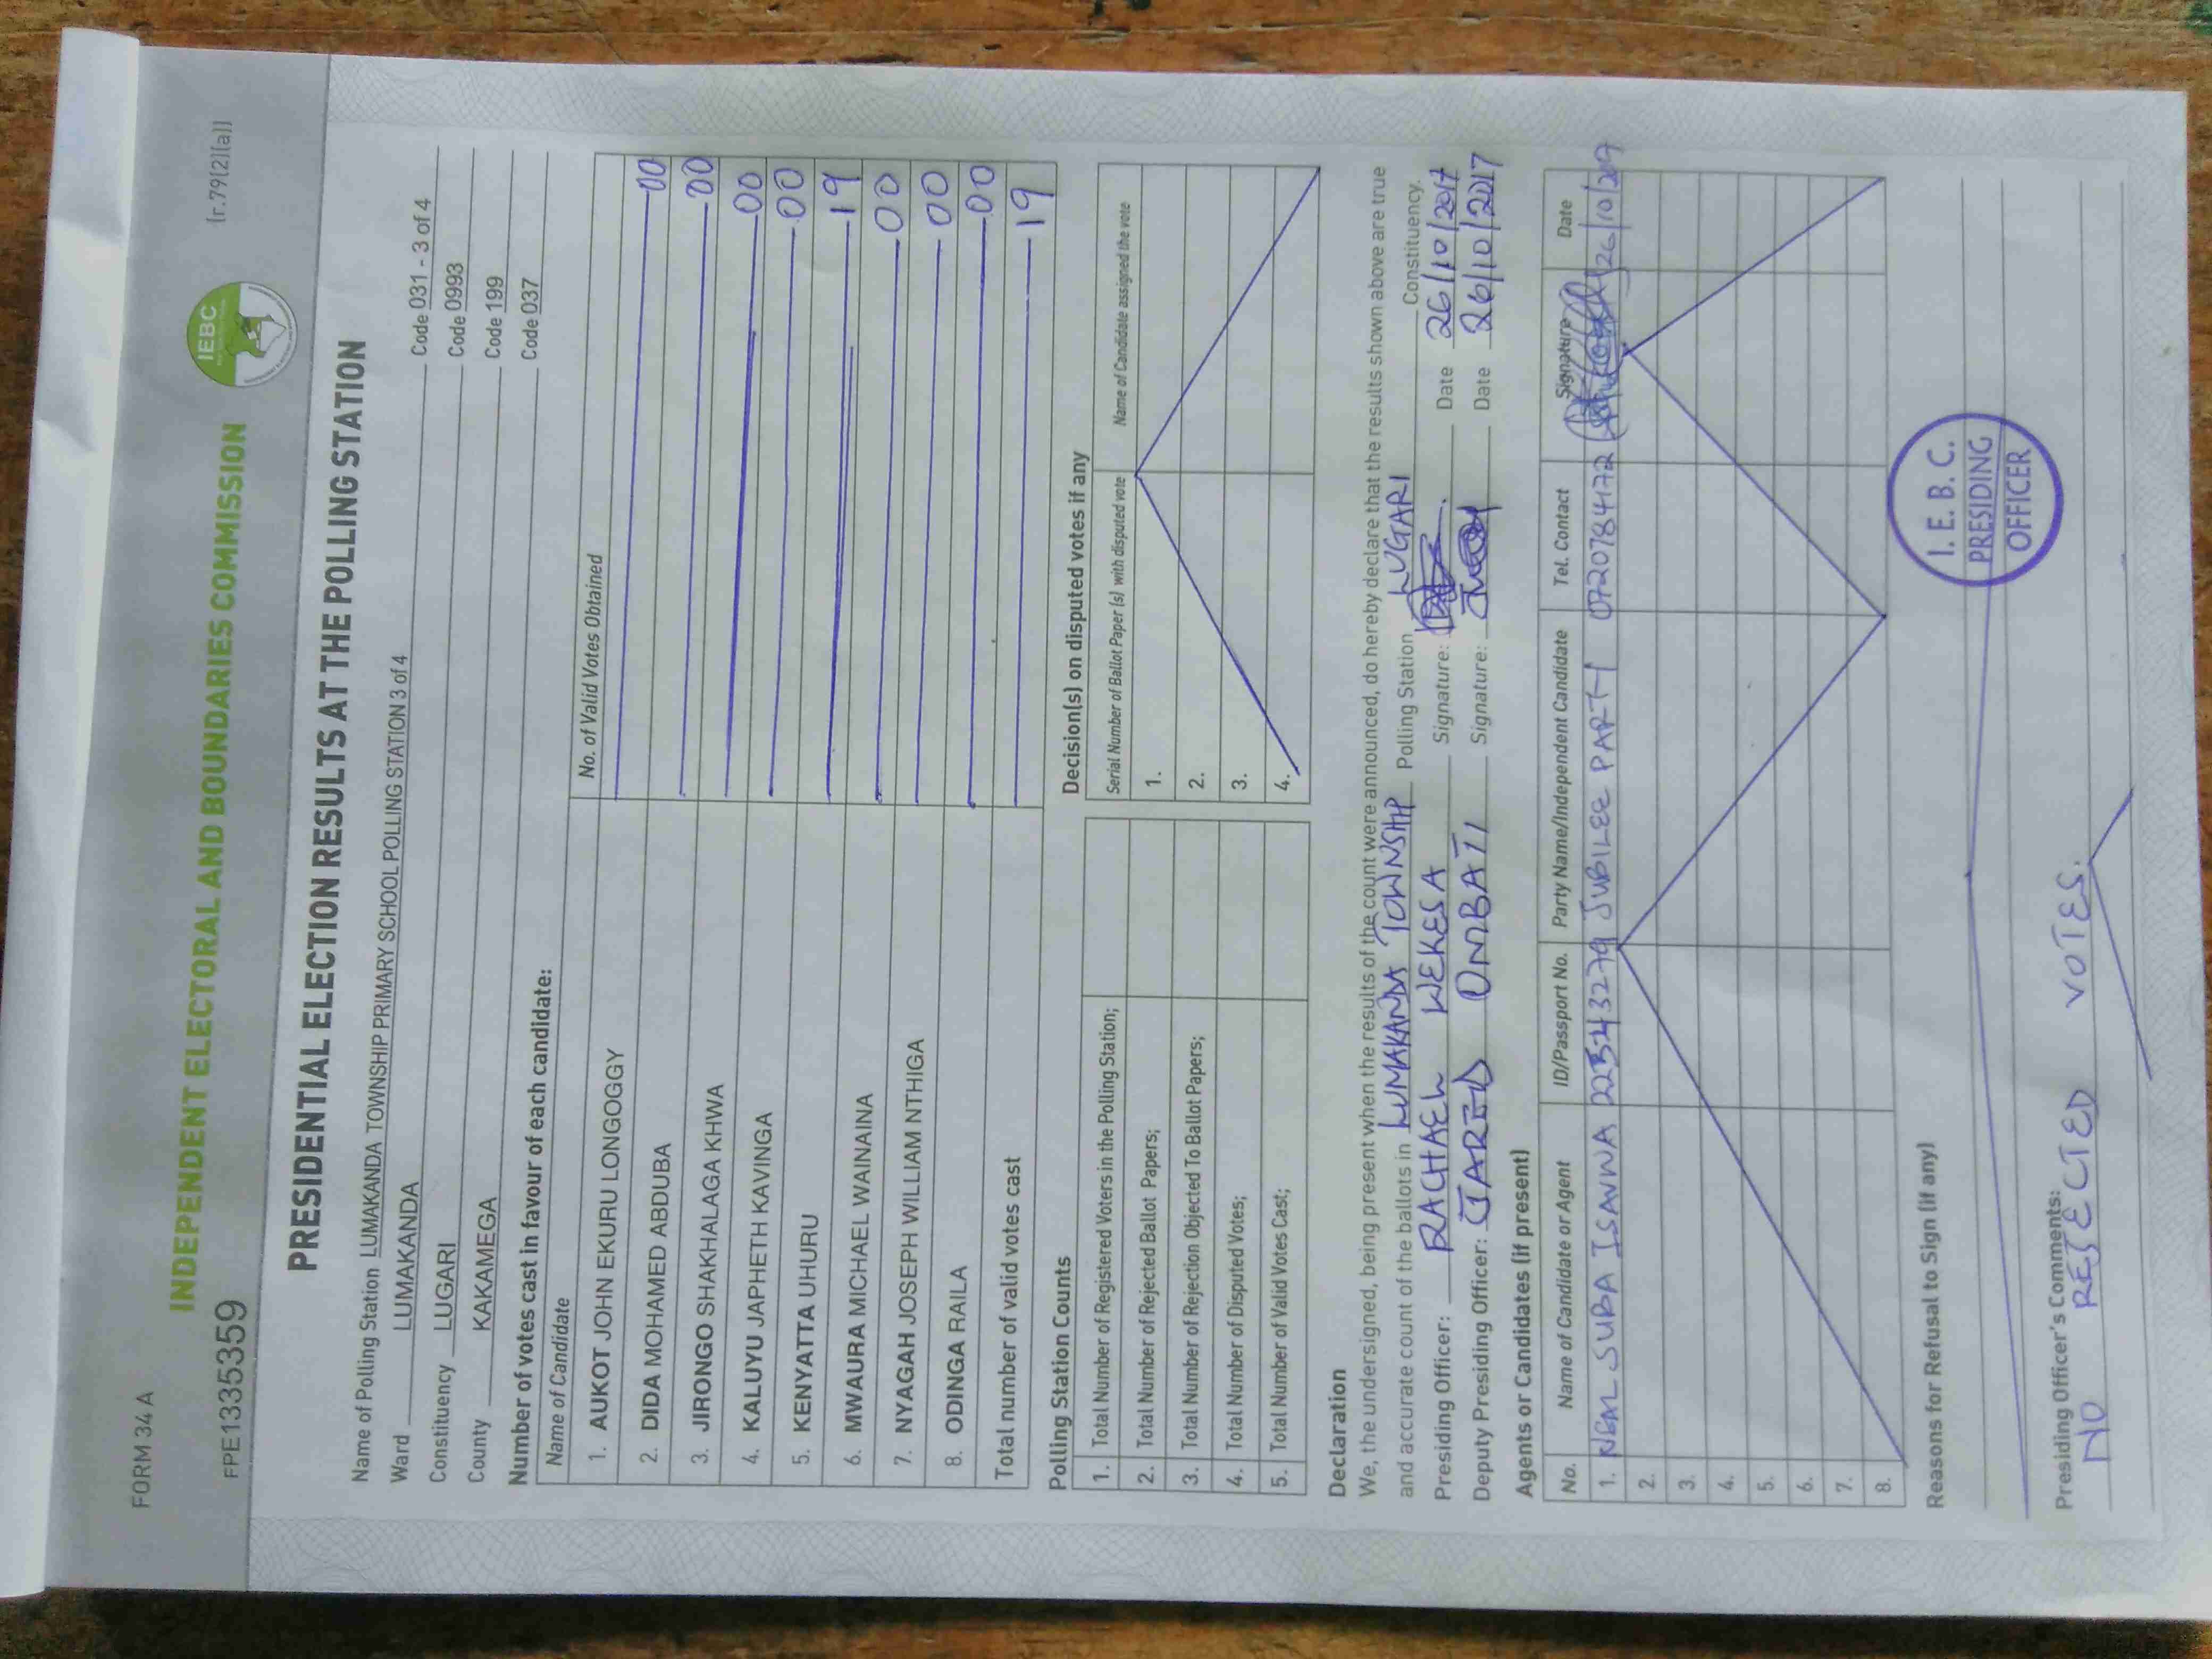 FORM 34 A
[r.79(2)(a)]
INDEPENDENT ELECTORAL AND BOUNDARIES COMMISSION
IEBC
FPE1335359
PRESIDENTIAL ELECTION RESULTS AT THE POLLING STATION
Name of Polling Station LUMAKANDA TOWNSHIP PRIMARY SCHOOL POLLING STATION 3 of 4 Code 031 - 3 of 4
Ward LUMAKANDA Code 0993
Constituency LUGARI Code 199
County KAKAMEGA Code 037
Number of votes cast in favour of each candidate:
Name of Candidate No. of Valid Votes Obtained
1. AUKOT JOHN EKURU LONGOGGY 00
2. DIDA MOHAMED ABDUBA 00
3. JIRONGO SHAKHALAGA KHWA 00
4. KALUYU JAPHETH KAVINGA 00
5. KENYATTA UHURU 19
6. MWAURA MICHAEL WAINAINA 00
7. NYAGAH JOSEPH WILLIAM NTHIGA 00
8. ODINGA RAILA 00
Total number of valid votes cast 19
Polling Station Counts
1. Total Number of Registered Voters in the Polling Station;
2. Total Number of Rejected Ballot Papers;
3. Total Number of Rejection Objected To Ballot Papers;
4. Total Number of Disputed Votes;
5. Total Number of Valid Votes Cast;
Decision(s) on disputed votes if any
Serial Number of Ballot Paper (s) with disputed vote Name of Candidate assigned the vote
1.
2.
3.
4.
Declaration
We, the undersigned, being present when the results of the count were announced, do hereby declare that the results shown above are true
and accurate count of the ballots in LUMAKANDA TOWNSHIP Polling Station LUGARI Constituency.
Presiding Officer: RACHAEL WEKESA Signature: Date 26/10/2017
Deputy Presiding Officer: JARED OMBATI Signature: Date 26/10/2017
Agents or Candidates (if present)
No. Name of Candidate or Agent ID/Passport No. Party Name/Independent Candidate Tel. Contact Signature Date
1. SUBA JUBILEE PARTY 0720784172 26/10/2017
2.
3.
4.
5.
6.
7.
8.
Reasons for Refusal to Sign (if any)
I. E. B. C.
PRESIDING
OFFICER
Presiding Officer's Comments:
NO REJECTED VOTES.